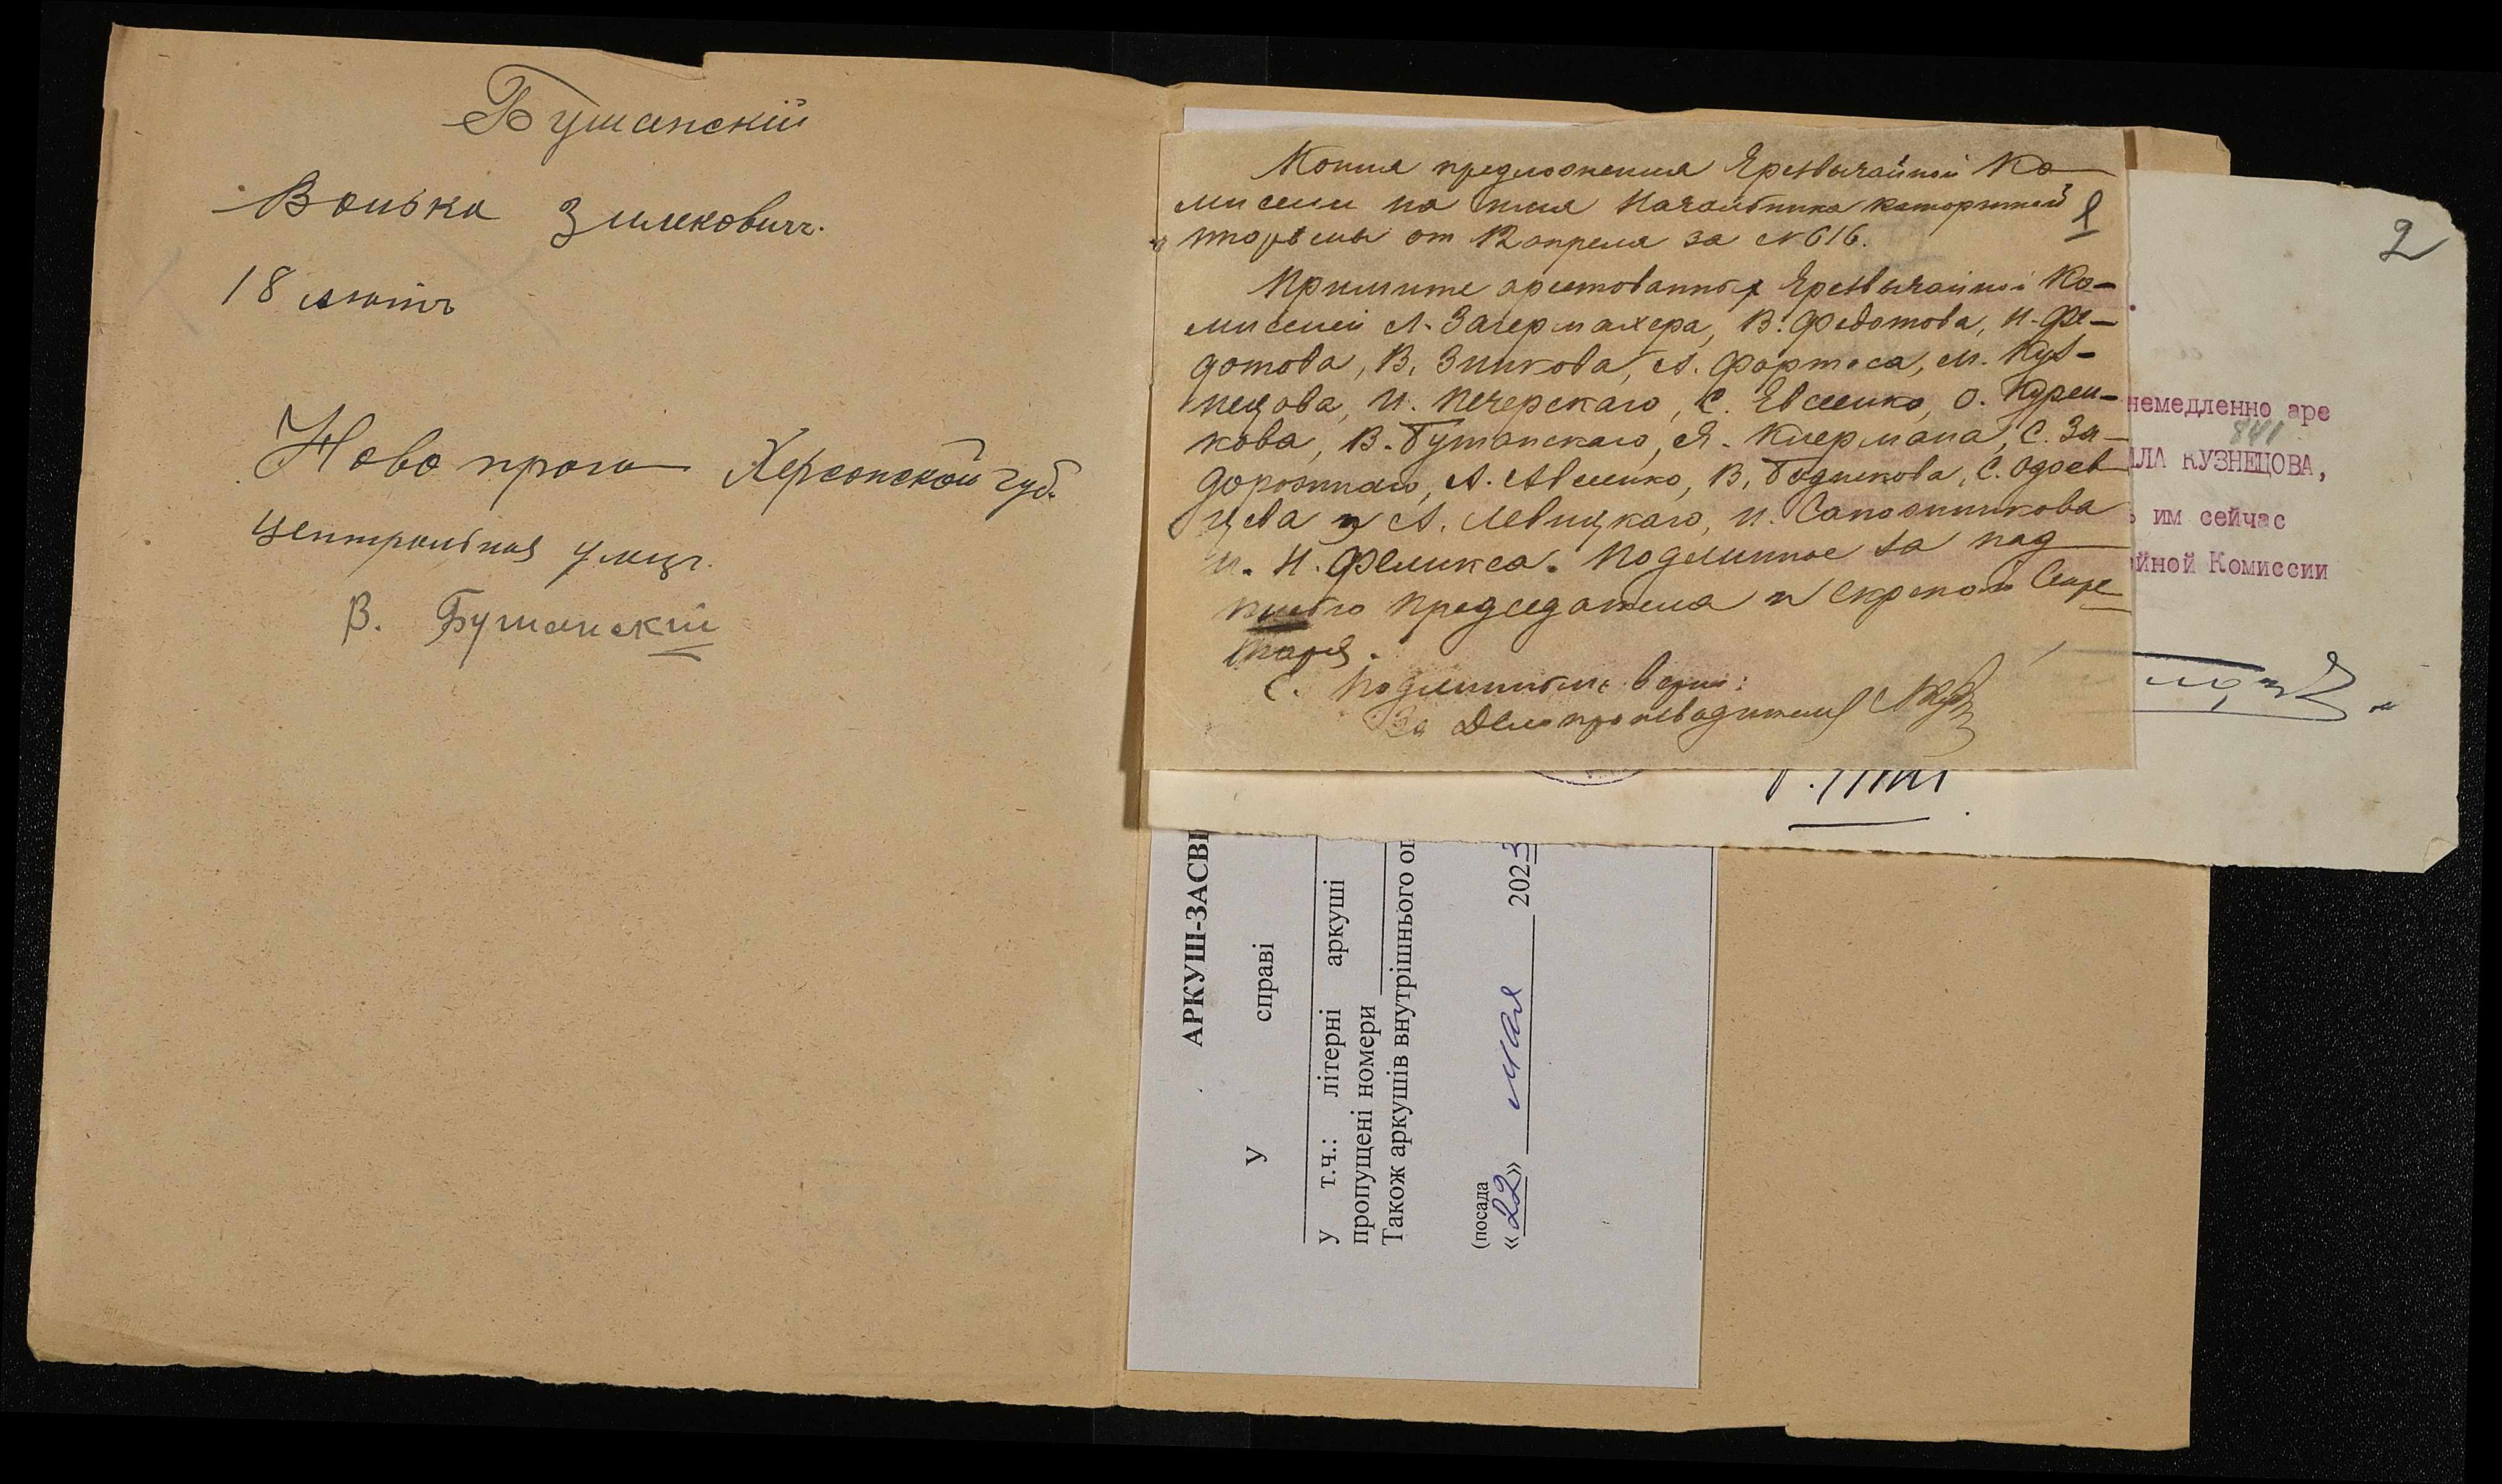 Бушанскій
Волька Зимековичъ.
18 лютъ
Ново прага Херсонской губ.
Центральная улица.
В. Бушанскій
Копия предложения Чрезвычайной Ко-
мисии на имя Начальника каторжной
тюрьмы от 12 апреля за №616.
1
Примите арестованных Чрезвычайной Ко-
мисией Л. Загермахера, В. Федотова, И. Фе-
дотова, В. Зыкова, А. Фортеса, М. Куз-
нецова, И. Печерскаго, С. Евсеенко, О. Курен-
кова, В. Бушанскаго, Я. Клермана, С. За-
дорожнаго, А. Авсеенко, В. Бодикова, С. Одоев-
цева и А. Левицкаго, И. Сапожникова
и Н. Феликса. Подлинное за под
писью председателя и скрепой Секре-
таря.
С подлинным верно:
За Делопроизводителя
2
немедленно аре
841
ИЛА КУЗНЕЦОВА,
им сейчас
йной Комиссии
АРКУШ-ЗАСВІ
У справі
у т.ч.: літерні аркуші
пропущені номери
Також аркушів внутрішнього оп
(посада
«22» мая 2023